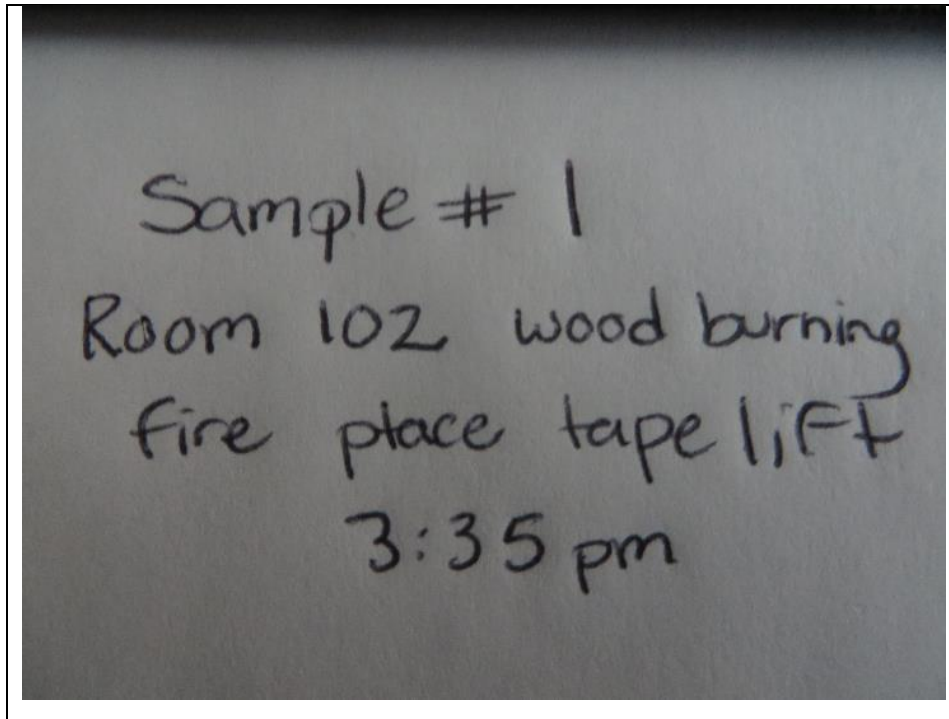 Sample # 1
Room 102 wood burning
fire place tape lift
3:35 pm